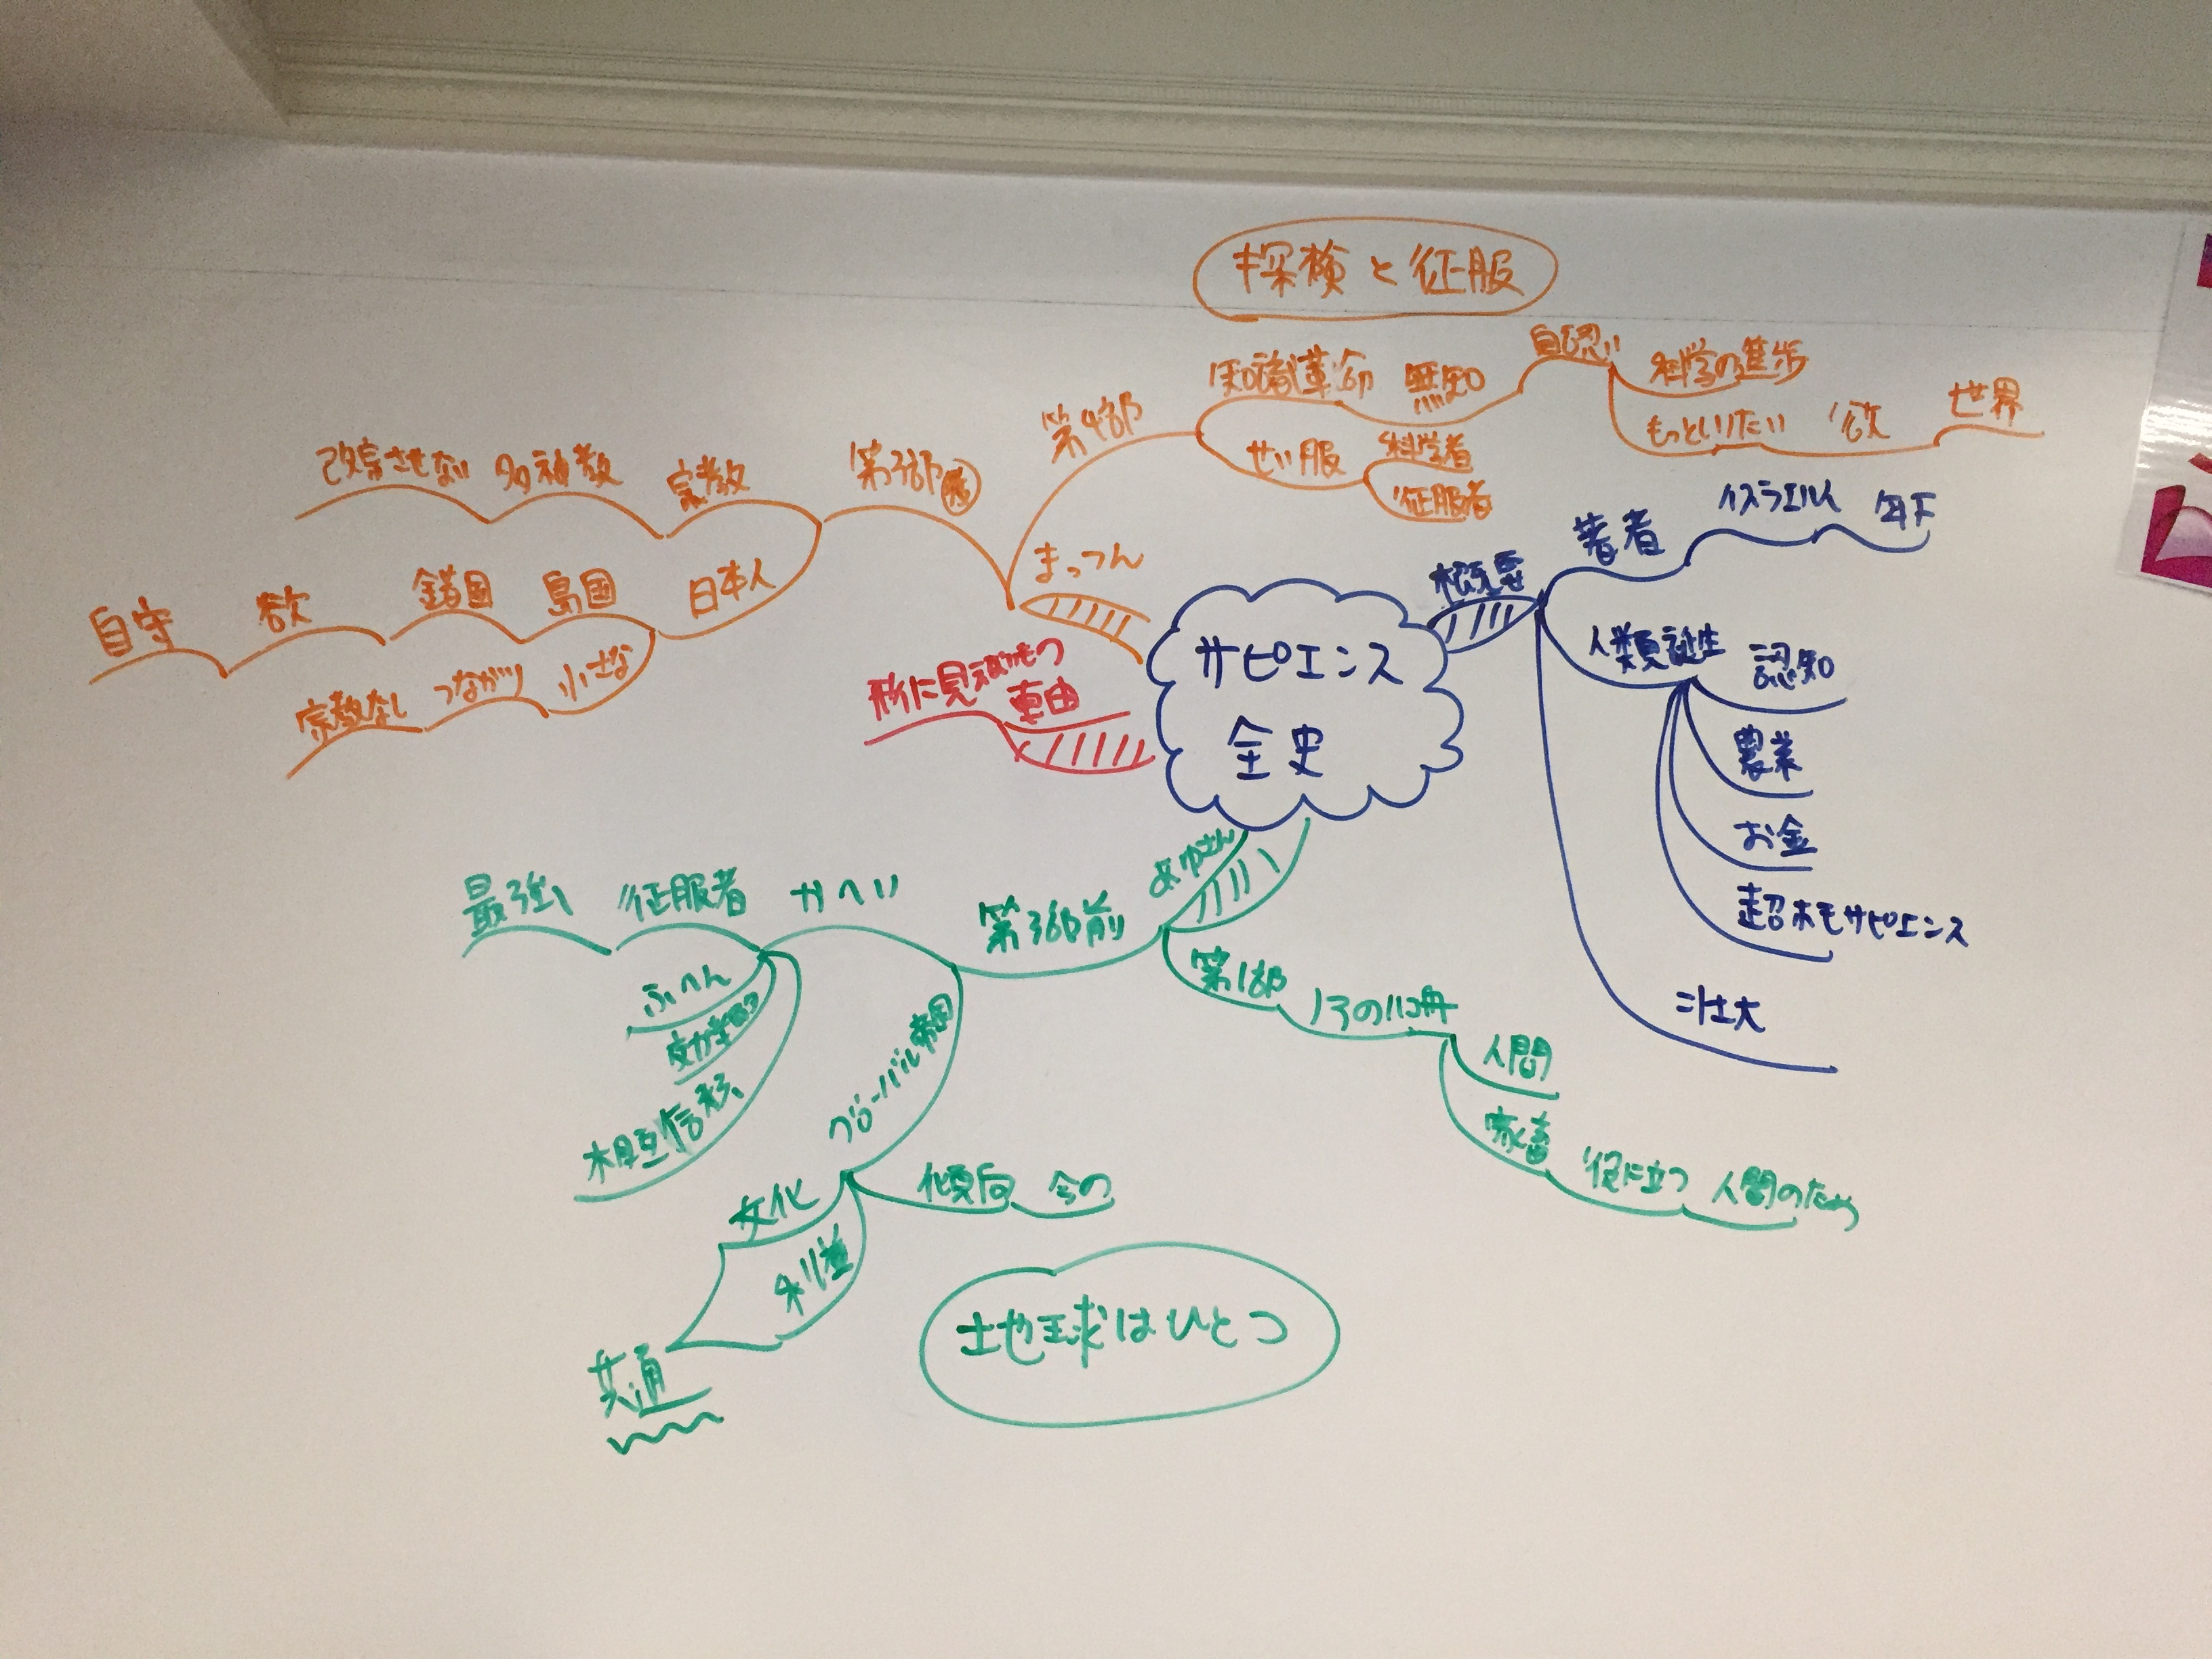 探検と征服
第4部
知識革命
無知
自認
科学の進歩
もっとしりたい
欲
世界
せい服
科学者
征服者
第3部後
宗教
多神教
改宗させない
日本人
島国
鎖国
欲
自守
小さな
つながり
宗教なし
まっつん
サピエンス
全史
概要
著者
イスラエル人
年下
人類誕生
認知
農業
お金
超ホモサピエンス
壮大
形に見えぬもの
自由
あゆさん
第3部前
かへい
征服者
最強
ふへん
効率的
相互信頼
グローバル帝国
文化
利益
共通
傾向
今の
第1部
人間
家畜
役に立つ
人間のため
地球はひとつ